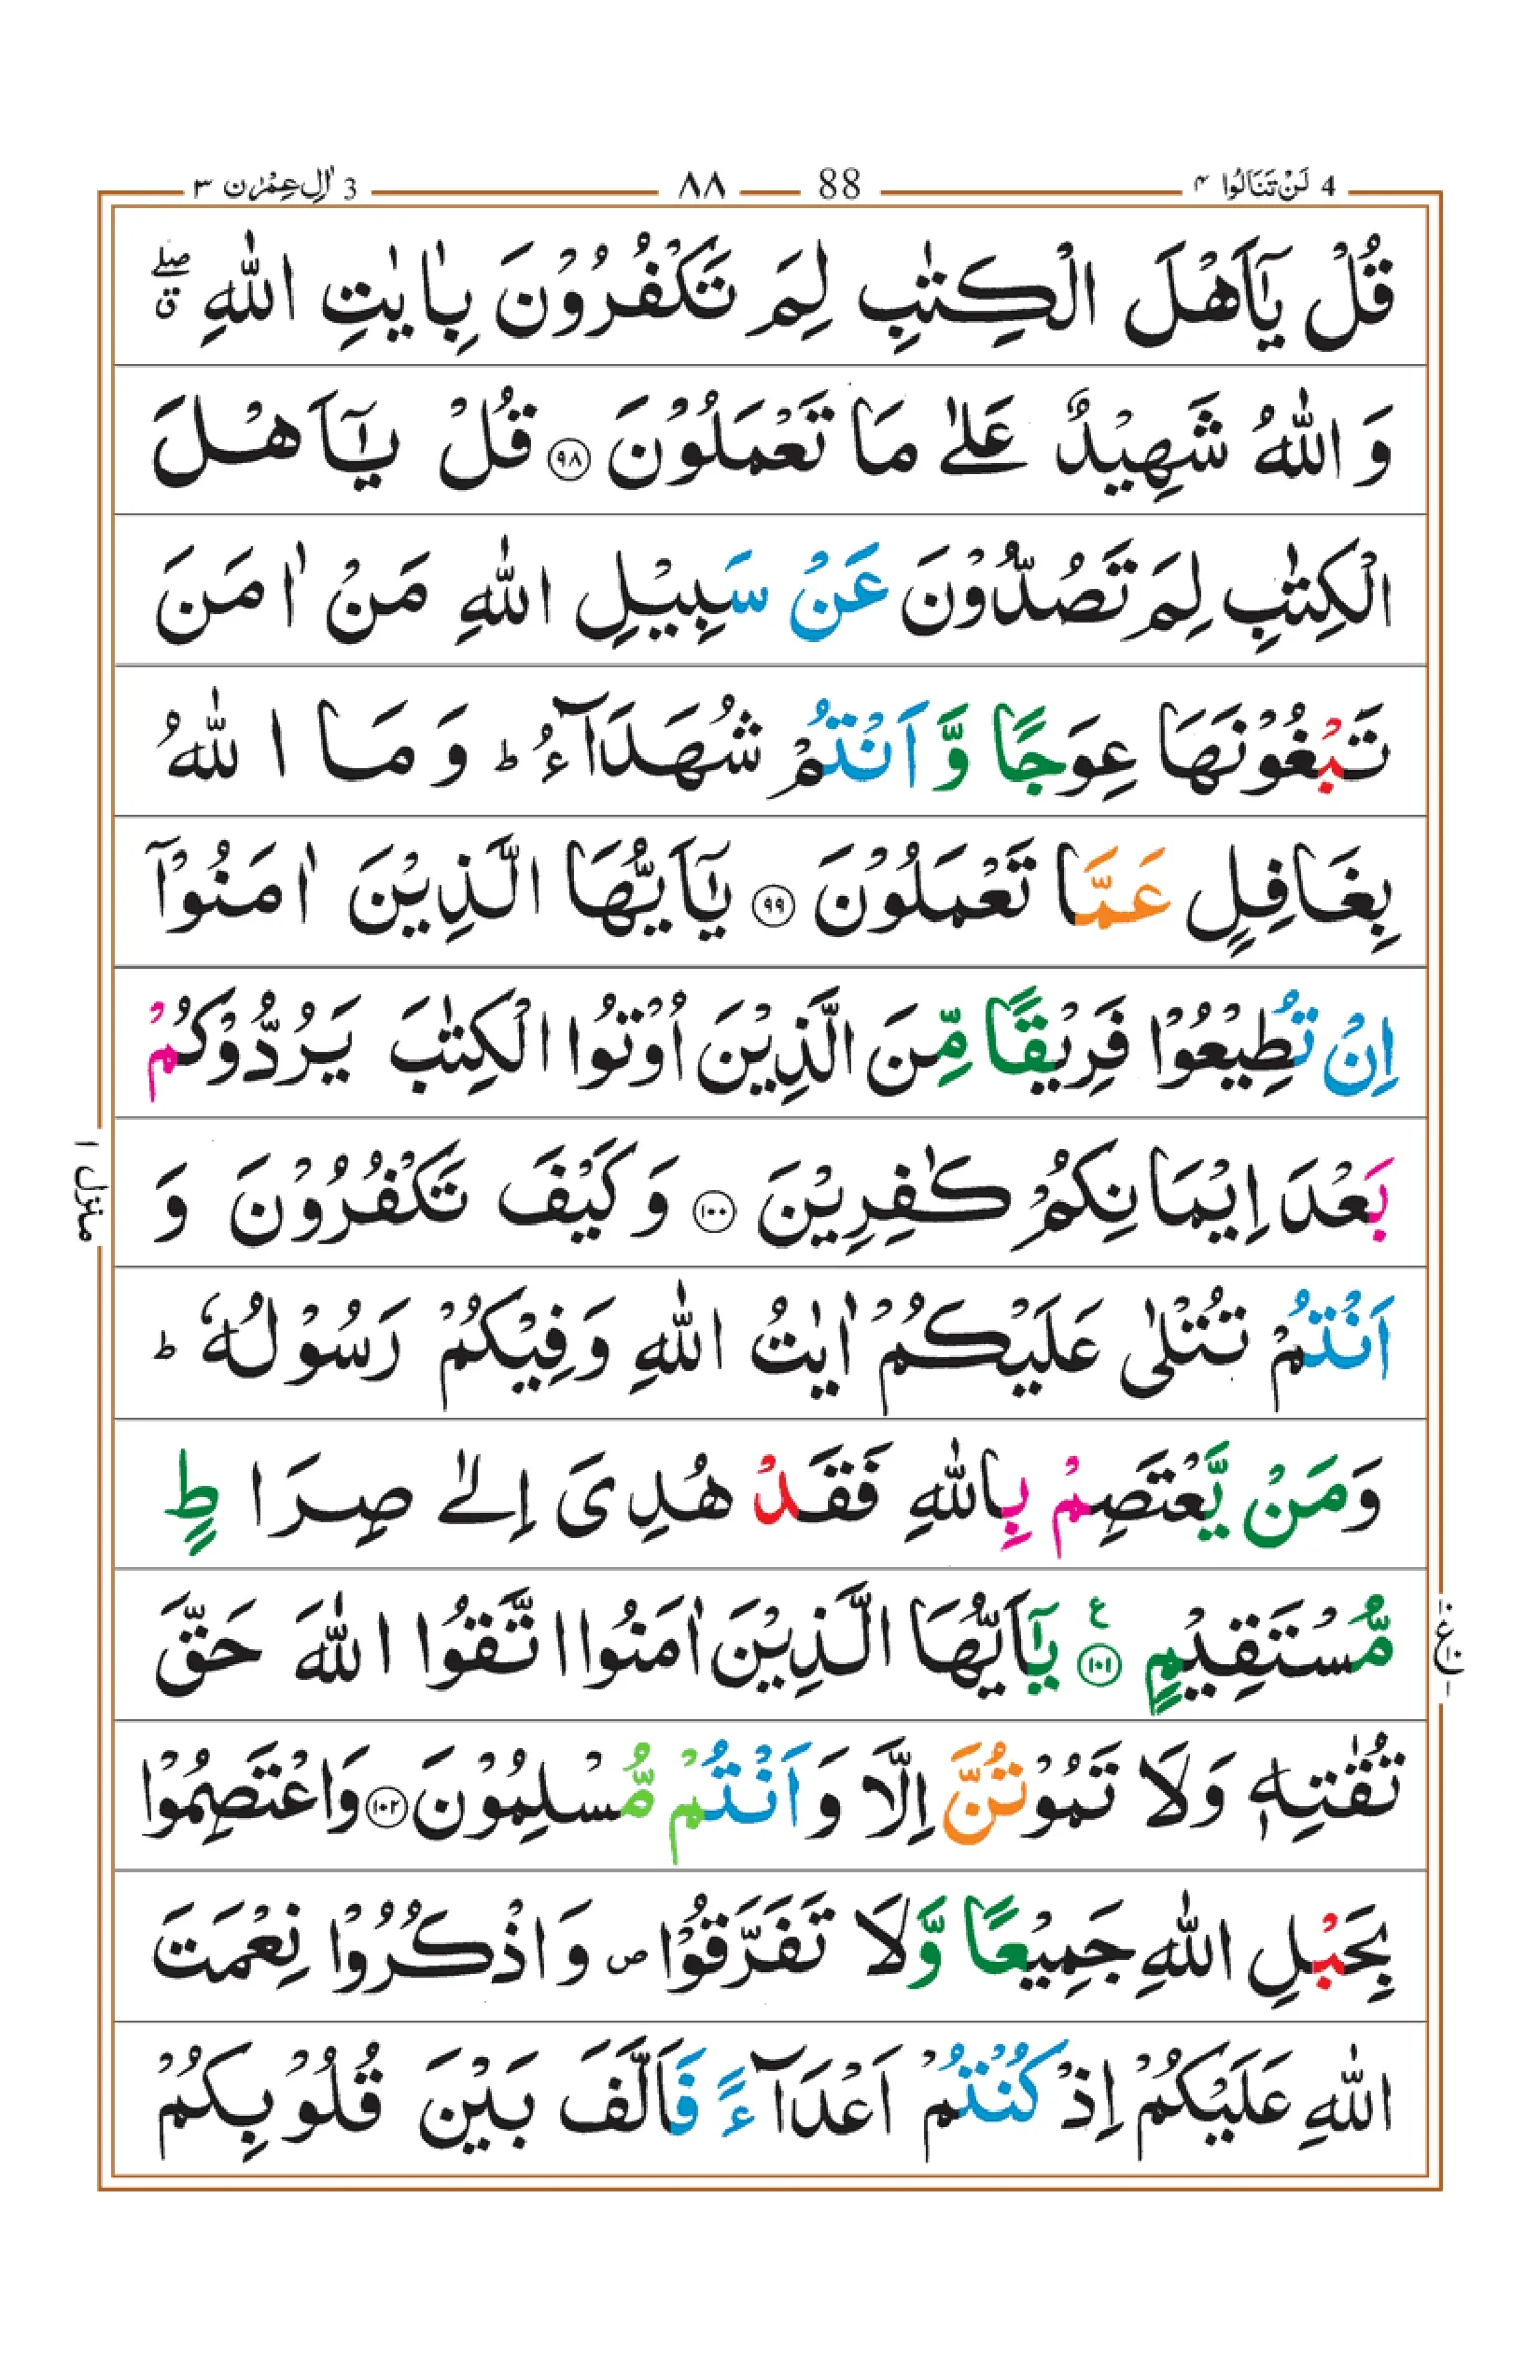 4 لَنْ تَنَالُوا ۴ 88 ۸۸ 3 اٰلِ عِمْرٰن ۳
قُلْ يٰۤاَهْلَ الْكِتٰبِ لِمَ تَكْفُرُوْنَ بِاٰيٰتِ اللّٰهِ ۖق
وَ اللّٰهُ شَهِيْدٌ عَلٰى مَا تَعْمَلُوْنَ ۝۹۸ قُلْ يٰۤاَهْلَ
الْكِتٰبِ لِمَ تَصُدُّوْنَ عَنْ سَبِيْلِ اللّٰهِ مَنْ اٰمَنَ
تَبْغُوْنَهَا عِوَجًا وَّ اَنْتُمْ شُهَدَآءُ ؕ وَ مَا اللّٰهُ
بِغَافِلٍ عَمَّا تَعْمَلُوْنَ ۝۹۹ يٰۤاَيُّهَا الَّذِيْنَ اٰمَنُوْۤا
اِنْ تُطِيْعُوْا فَرِيْقًا مِّنَ الَّذِيْنَ اُوْتُوا الْكِتٰبَ يَرُدُّوْكُمْ
بَعْدَ اِيْمَانِكُمْ كٰفِرِيْنَ ۝۱۰۰ وَ كَيْفَ تَكْفُرُوْنَ وَ
اَنْتُمْ تُتْلٰى عَلَيْكُمْ اٰيٰتُ اللّٰهِ وَ فِيْكُمْ رَسُوْلُهٗ ؕ
وَ مَنْ يَّعْتَصِمْ بِاللّٰهِ فَقَدْ هُدِيَ اِلٰى صِرَاطٍ
مُّسْتَقِيْمٍ ۝۱۰۱ ع يٰۤاَيُّهَا الَّذِيْنَ اٰمَنُوا اتَّقُوا اللّٰهَ حَقَّ
تُقٰتِهٖ وَ لَا تَمُوْتُنَّ اِلَّا وَ اَنْتُمْ مُّسْلِمُوْنَ ۝۱۰۲ وَ اعْتَصِمُوْا
بِحَبْلِ اللّٰهِ جَمِيْعًا وَّ لَا تَفَرَّقُوْا ص وَ اذْكُرُوْا نِعْمَتَ
اللّٰهِ عَلَيْكُمْ اِذْ كُنْتُمْ اَعْدَآءً فَاَلَّفَ بَيْنَ قُلُوْبِكُمْ
منزل ۱